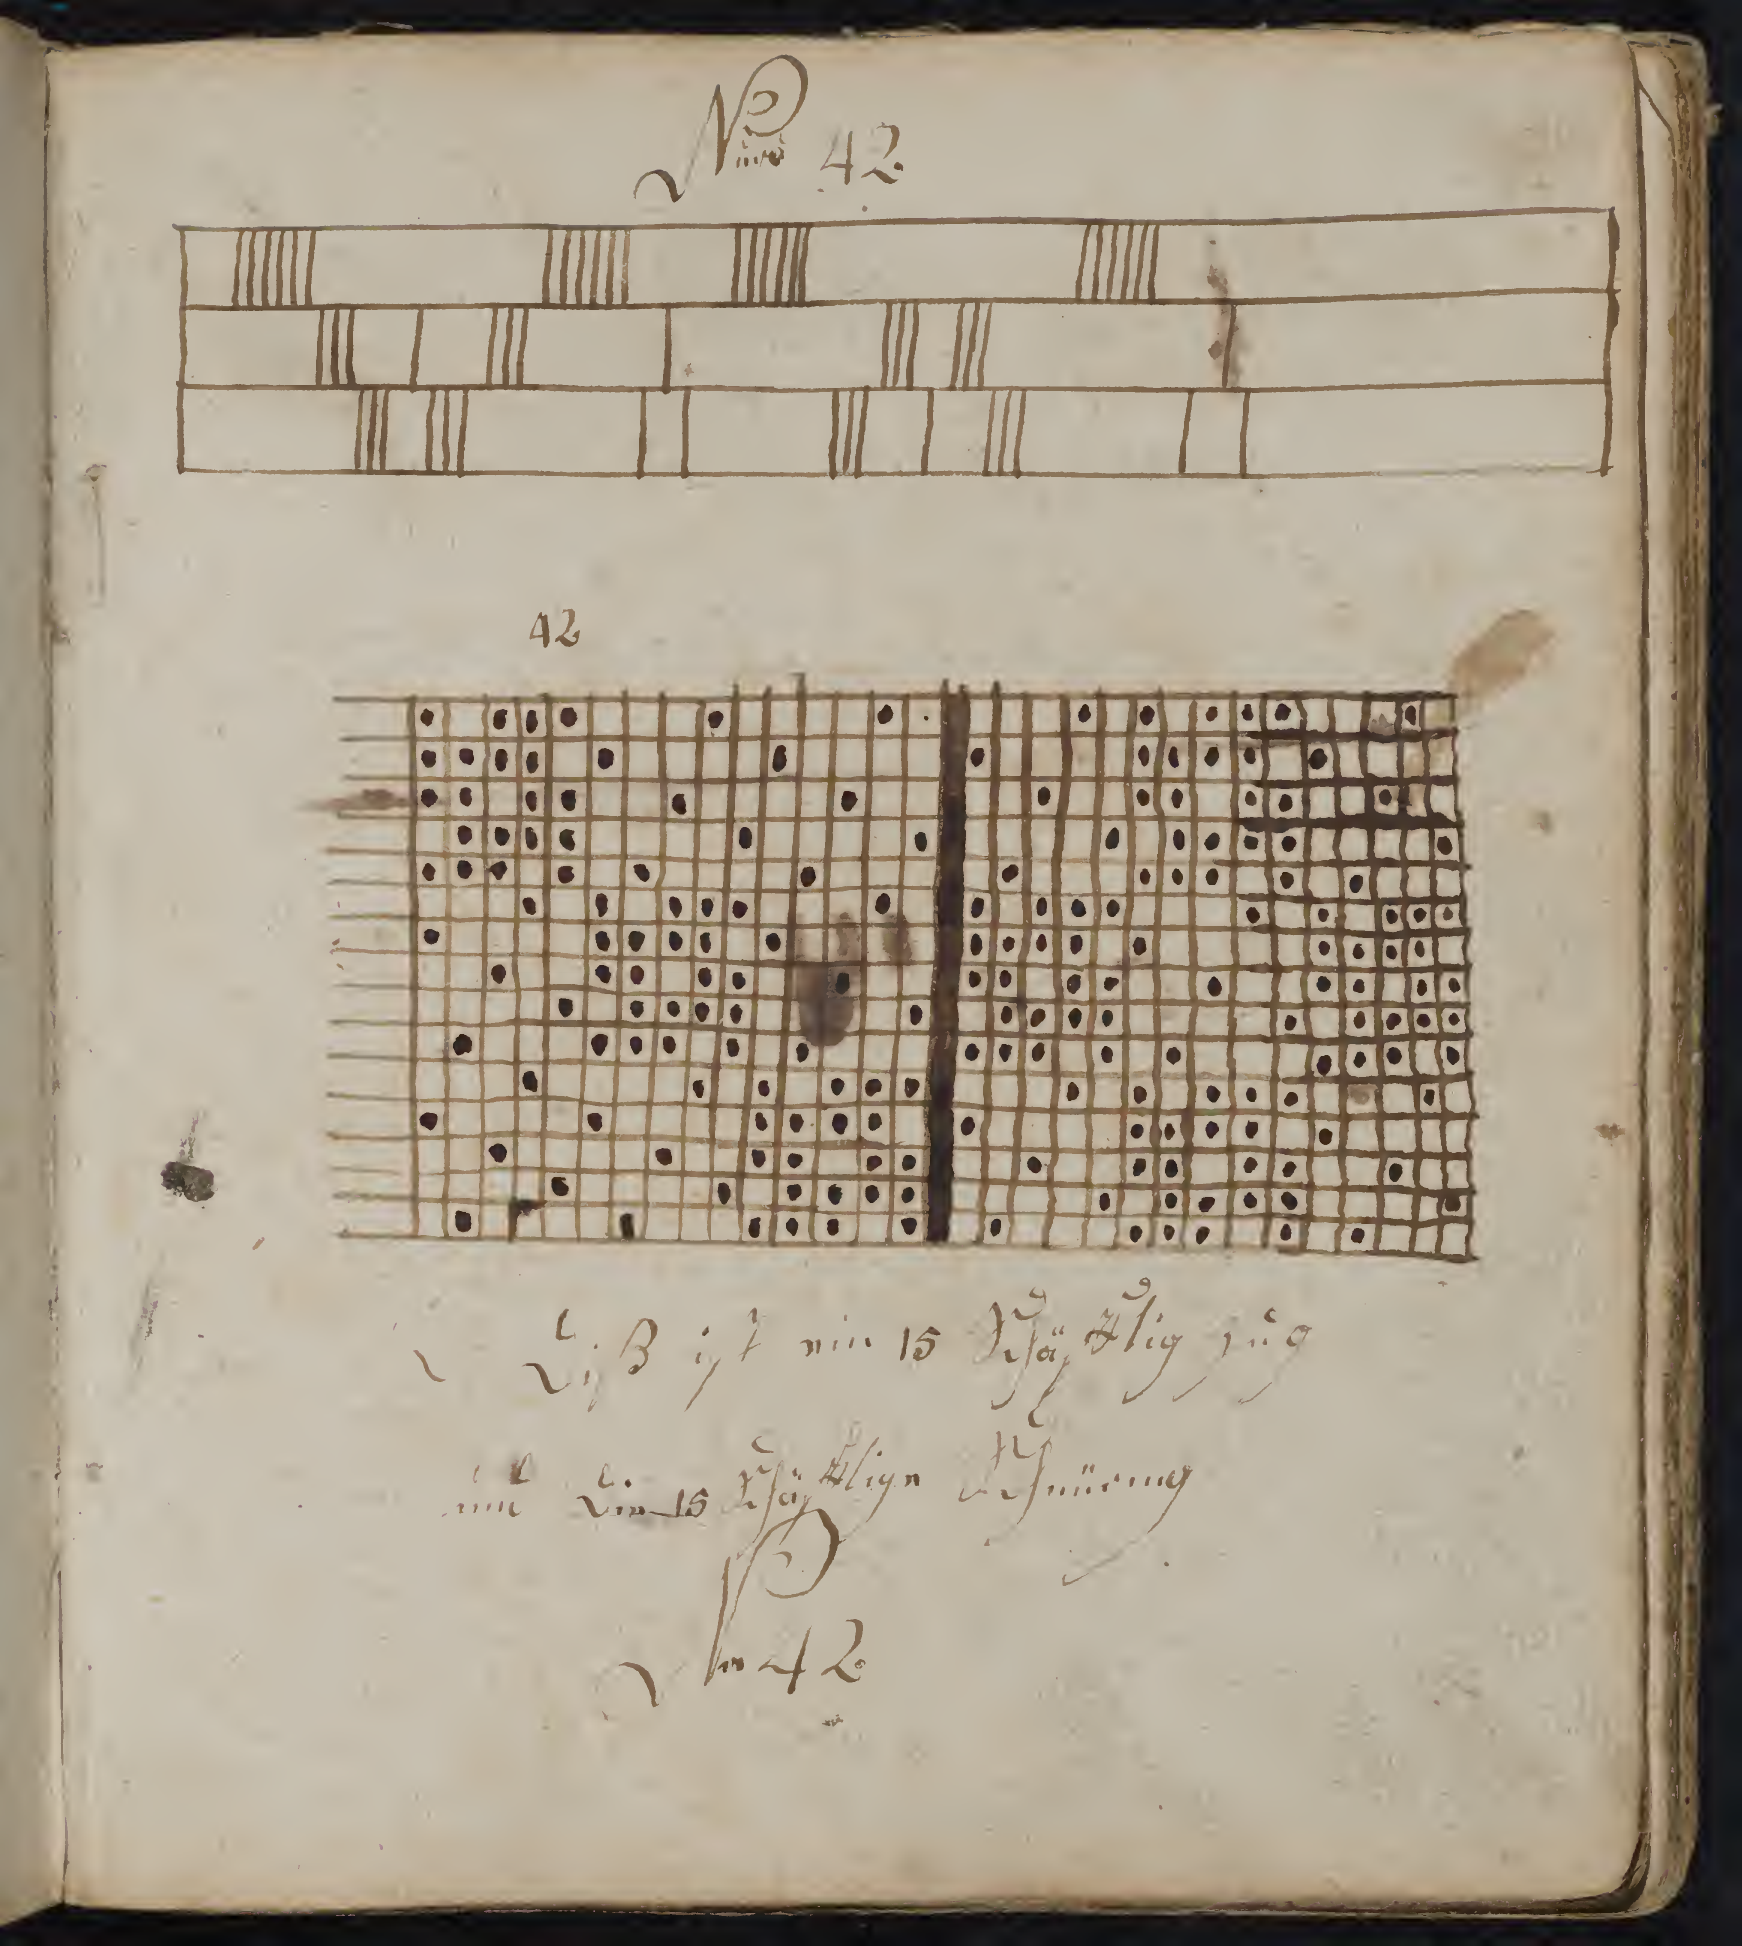 Num̅ 42.
42
Diß ist ein 15 Schäfftlig zug
und Die 15 Schäfftlige Schnürung
No 42.